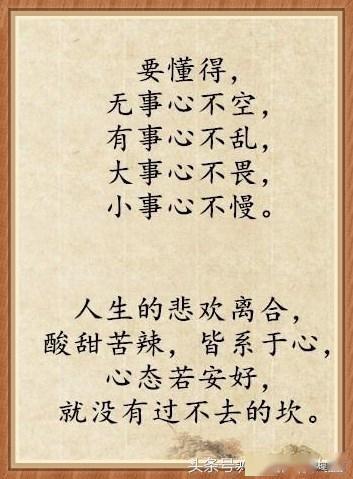 要懂得，
无事心不空，
有事心不乱，
大事心不畏，
小事心不慢。
人生的悲欢离合，
酸甜苦辣，皆系于心，
心态若安好，
就没有过不去的坎。
头条号